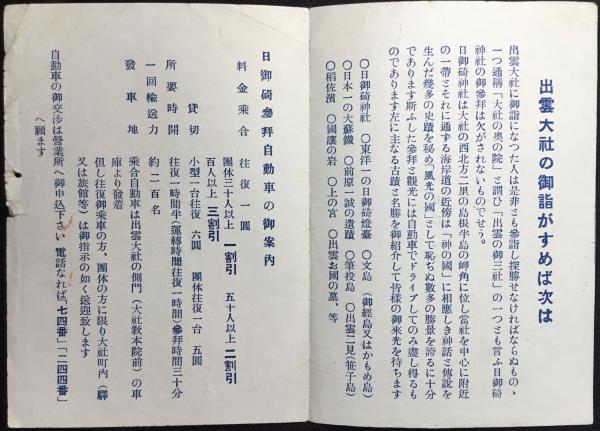 出雲大社の御詣がすめば次は
出雲大社に御詣になつた人は是非とも參詣し探勝せなければならぬもの、
一つ通稱「大社の奥の院」と謂ひ「出雲の御三社」の一つとも言ふ日御碕
神社の御參拜は欠がされないものでせう。
日御碕神社は大社の西北方二里の島根半島の岬角に位し當社を中心に附近
の一帶とそれに通ずる海岸道の近傍は「神の國」に相應しき神話と傳說を
生んだ幾多の史蹟を秘め「風光の國」として恥ぢぬ數多の勝景を誇るに十分
であります斯ふした參拜と觀光には自動車でドライブしてのみ盡し得るも
のであります左に主なる古蹟と名勝を御紹介して皆樣の御來光を待ちます
〇日御碕神社 〇東洋一の日御碕燈臺 〇文島(御經島又はかもめ島)
〇日本一の大蘇鐵 〇前原一誠の遺蹟 〇筆投島 〇出雲二見(笹子島)
〇稻佐濱 〇國讓の岩 〇上の宮 〇出雲お國の墓、等
日御碕參拜自動車の御案内
料金乘合 往復 一圓
團体三十人以上 一割引 五十人以上 二割引
百人以上 三割引
貸切 小型一台往復 六圓 團体往復一台 五圓
所要時間 往復一時間半(運轉時間往復一時間)參拜時間三十分
一回輸送力 約二百名
發車地 乘合自動車は出雲大社の側門(大社敎本院前)の車
庫より發着
但し往復御乘車の方、團体の方に限り大社町内(驛
又は旅館等)は御指示の如く送迎致します
自動車の御交涉は營業所へ御申込下さい 電話なれば「七四番」「二四四番」
へ願ます